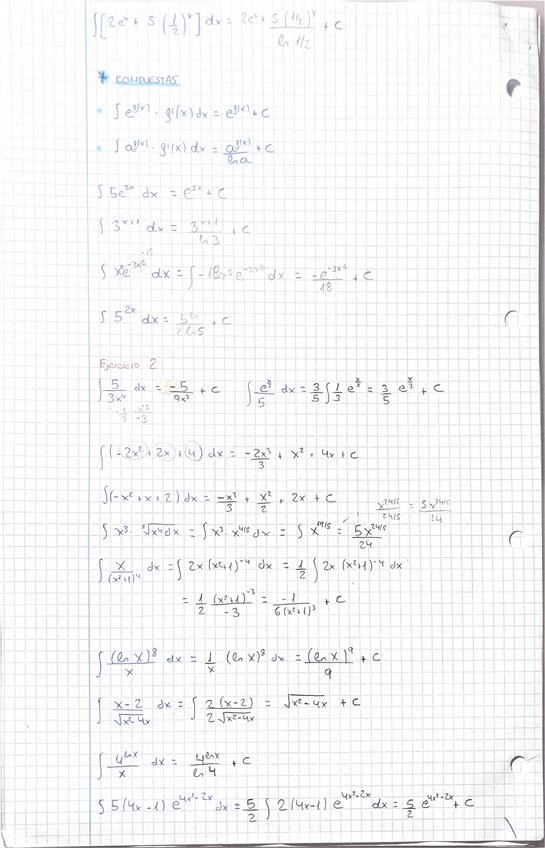 ∫[2eˣ + 5(1/2)ˣ] dx = 2eˣ + 5(1/2)ˣ / ln 1/2 + C
* COMPUESTAS
• ∫ e^g(x) · g'(x) dx = e^g(x) + C
• ∫ a^g(x) · g'(x) dx = a^g(x) / ln a + C
∫ 5e^5x dx = e^5x + C
∫ 3^x+1 dx = 3^x+1 / ln 3 + C
∫ x⁵e^-3x⁶ dx = ∫ -18x⁵ e^-3x⁶ dx = -e^-3x⁶ / 18 + C
∫ 5^2x dx = 5^2x / 2 ln 5 + C
Ejercicio 2
∫ 5/3x⁴ dx = -5/9x³ + C ∫ e^x/3 / 5 dx = 3/5 ∫ 1/3 e^x/3 = 3/5 e^x/3 + C
∫(-2x² + 2x + 4) dx = -2x³/3 + x² + 4x + C
∫(-x² + x + 2) dx = -x³/3 + x²/2 + 2x + C
x^24/5 / 24/5 = 5x^24/5 / 24
∫ x³ · ⁵√x⁴ dx = ∫ x³ · x^4/5 dx = ∫ x^19/5 = 5x^24/5 / 24
∫ x/(x²+1)⁴ dx = ∫ 2x (x²+1)⁻⁴ dx = 1/2 ∫ 2x (x²+1)⁻⁴ dx
= 1/2 (x²+1)⁻³ / -3 = -1 / 6(x²+1)³ + C
∫ (ln x)⁸ / x dx = 1/x (ln x)⁸ dx = (ln x)⁹ / 9 + C
∫ x-2 / √x²-4x dx = ∫ 2(x-2) / 2√x²-4x = √x²-4x + C
∫ 4^ln x / x dx = 4^ln x / ln 4 + C
∫ 5(4x-1) e^4x²-2x dx = 5/2 ∫ 2(4x-1) e^4x²-2x dx = 5/2 e^4x²-2x + C